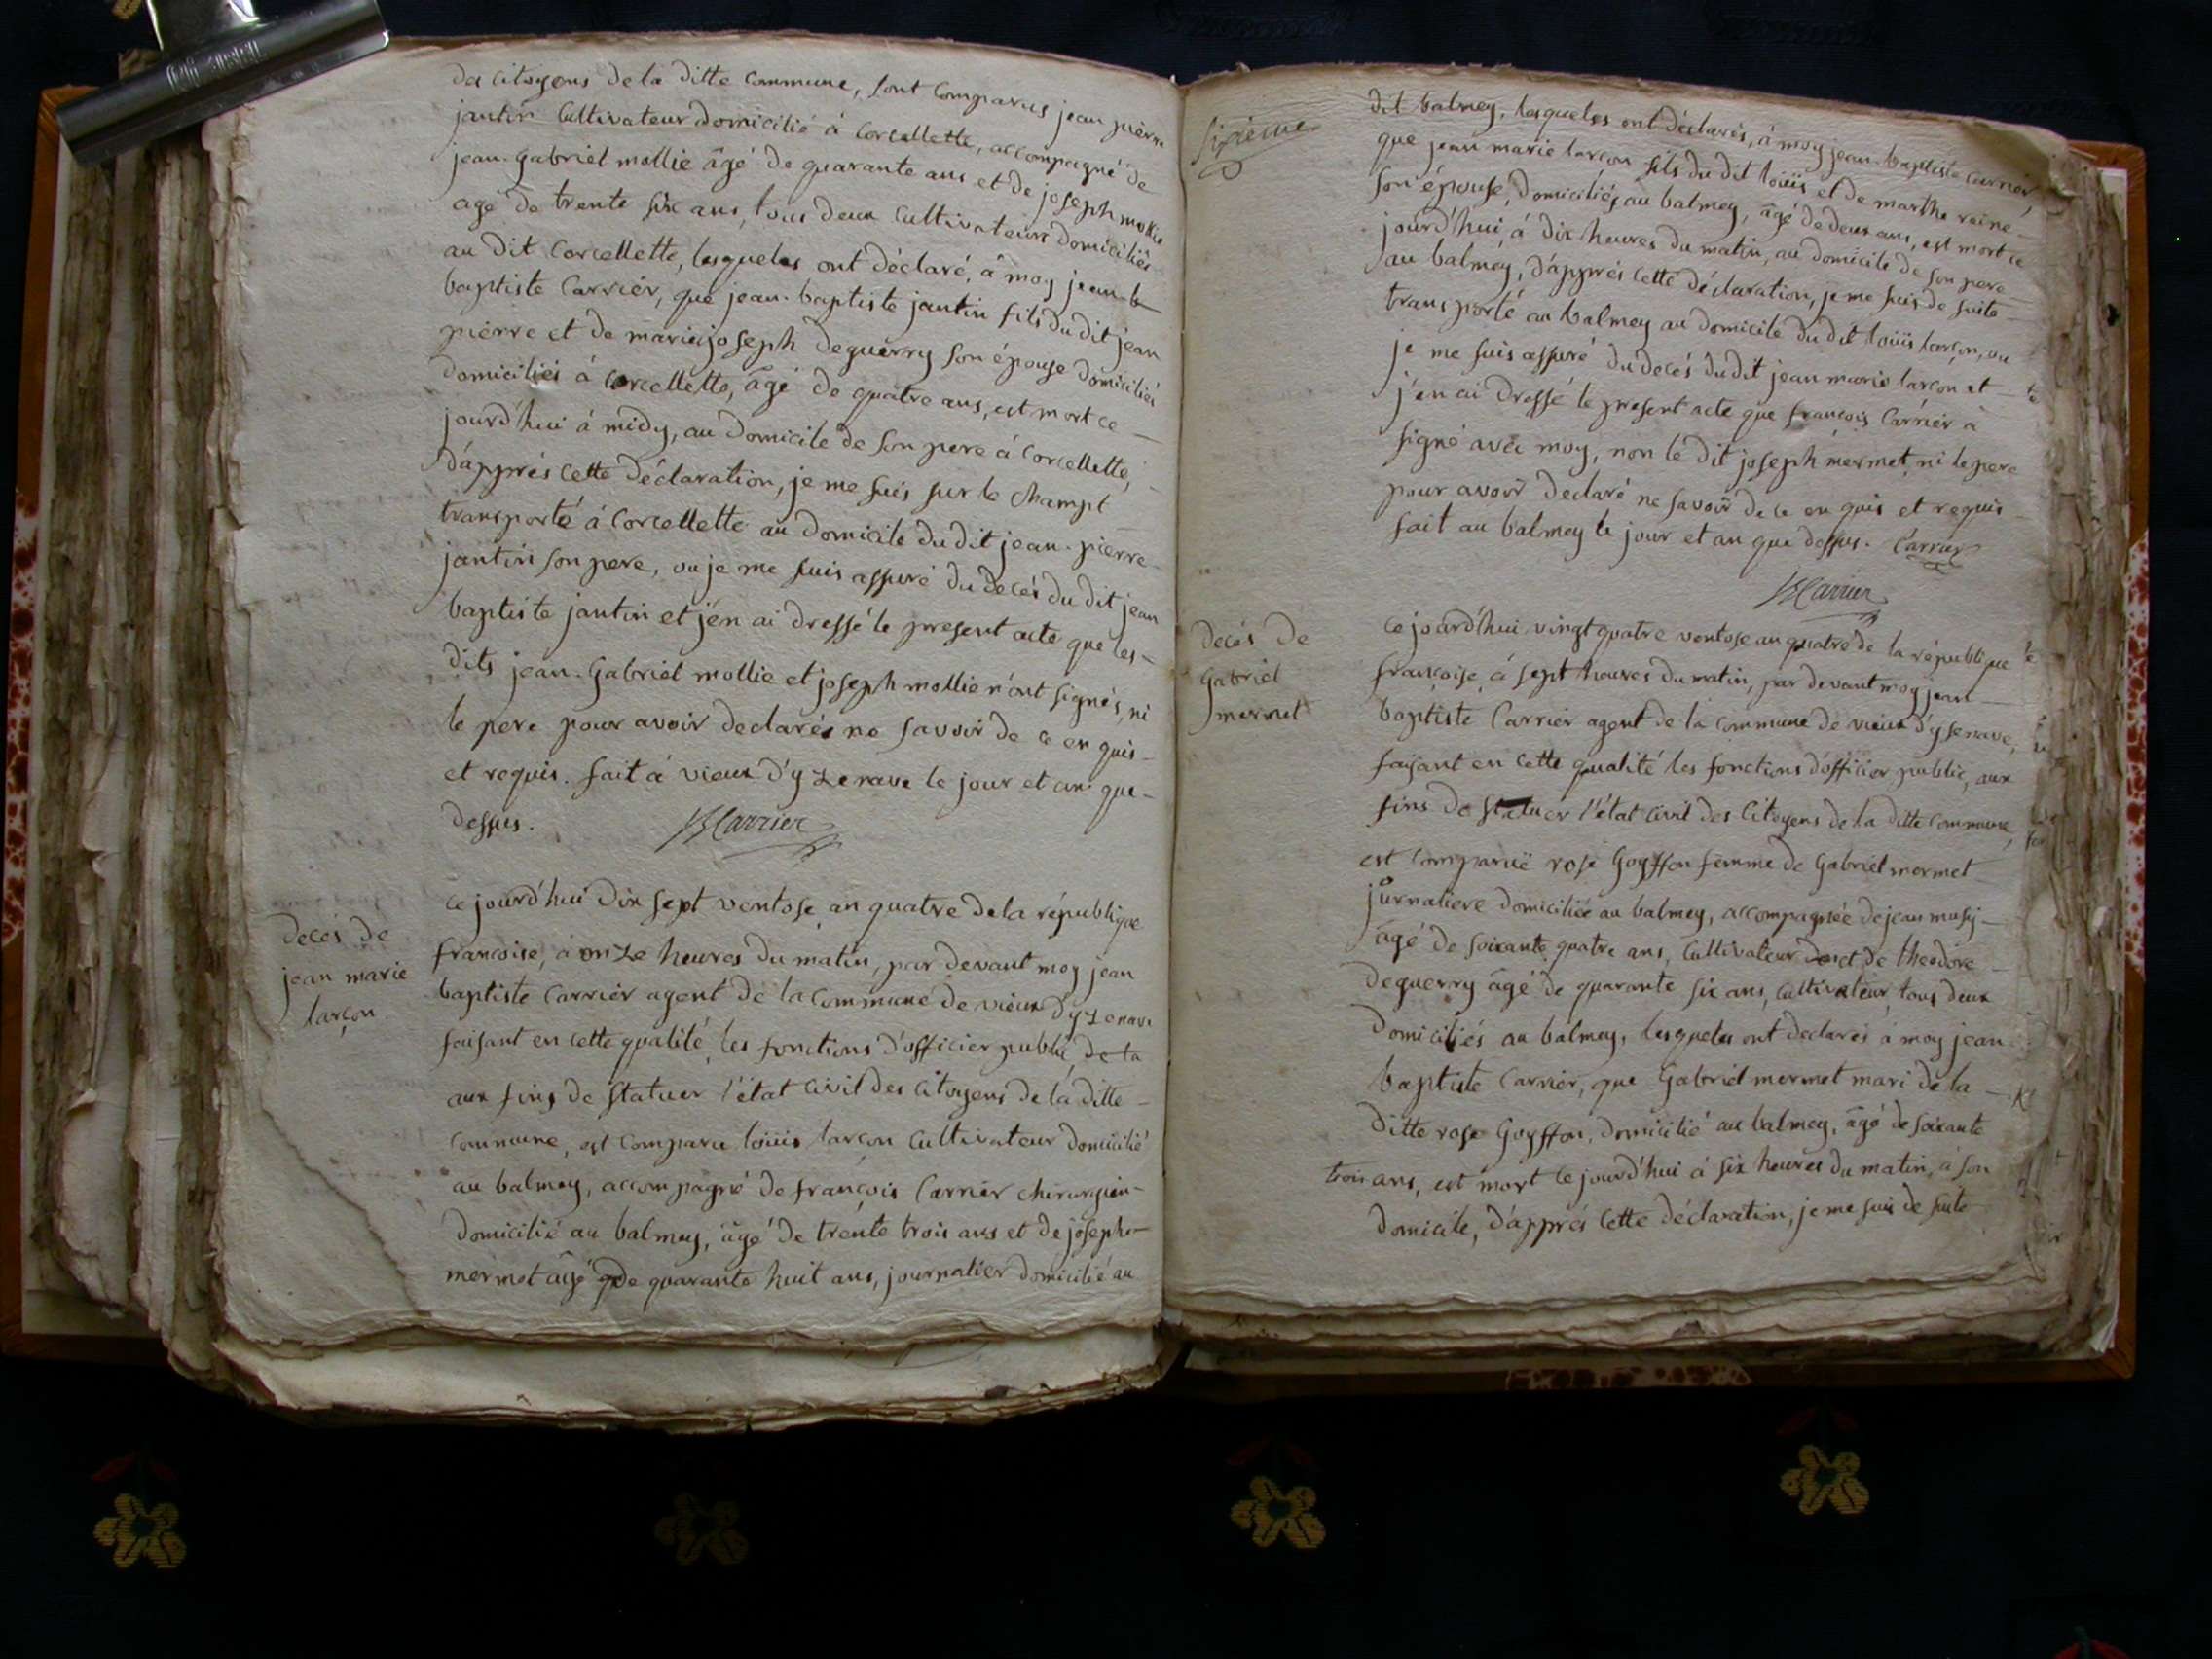 des citoyens de la ditte commune, sont comparus jean pierre
jantin cultivateur domicilié à corcellette, accompagné de
jean-gabriel mollie âgé de quarante ans et de joseph mollie
agé de trente six ans, tous deux cultivateurs domiciliés
au dit corcellette, lesqueles ont déclaré, à moy jean-b
baptiste Carrier, que jean-baptiste jantin fils du dit jean
pierre et de marie joseph deguerry son épouse domiciliés
domiciliés à corcellette, âgé de quatre ans, est mort ce
jourd'hui à midy, au domicile de son pere à corcellette,
d'apprés cette déclaration, je me suis sur le champt
transporté à corcellette au domicile du dit jean-pierre
jantin son pere, ou je me suis assuré du decés du dit jean
baptiste jantin et j'en ai dressé le present acte que les-
dits jean-Gabriel mollie et joseph mollie n'ont signés, ni
le pere pour avoir declarés ne savoir de ce en quis
et requis. fait à vieux d'yzenave le jour et an que
dessus. JBCarrier
decés de
jean marie
larçon.
ce jourd'hui dix sept ventose an quatre de la république
françoise, à onze heures du matin, par devant moy jean
baptiste Carrier agent de la commune de vieux d'yzenave
faisant en cette qualité, les fonctions d'officier public de la
aux fins de statuer l'état civil des citoyens de la ditte
commune, est comparu loüis larçon cultivateur domicilié
au balmey, accompagné de françois Carrier chirurgien
domicilié au balmey, âgé de trente trois ans et de joseph
mermet âgé de quarante huit ans, journalier domicilié au
sixieme
dit balmey, lesqueles ont déclarés, à moy jean-baptiste carrier,
que jean marie larçon fils du dit loüis et de marthe reine
son épouse, domiciliés au balmey, âgé de deux ans, est mort ce
jourd'hui à dix heures du matin, au domicile de son pere
au balmey, d'apprés cette déclaration, je me suis de suite
transporté au balmey au domicile du dit loüis larçon, ou
je me suis assuré du decés du dit jean marie larçon et
j'en ai dressé le present acte que françois Carrier à
signé avec moy, non le dit joseph mermet, ni le pere
pour avoir declaré ne savoir de ce en quis et requis
fait au balmey le jour et an que dessus. Carrier
JBCarrier
decés de
Gabriel
mermet
Ce jourd'hui vingt quatre ventose an quatre de la république
françoise, à sept heures du matin, par devant moy jean
baptiste Carrier agent de la commune de vieux d'ysenave,
faisant en cette qualité les fonctions d'officier public, aux
fins de statuer l'état civil des citoyens de la ditte commune,
est comparuë rose Goyffon femme de Gabriel mermet
journaliere domiciliée au balmey, accompagnée de jean musy
âgé de soixante quatre ans, cultivateur et de theodore
deguerry âgé de quarante six ans, cultivateur, tous deux
domiciliés au balmey, lesqueles ont declarés à moy jean
baptiste Carrier, que Gabriel mermet mari de la
ditte rose Goyffon, domicilié au balmey, âgé de soixante
trois ans, est mort ce jourd'hui à six heures du matin, à son
domicile, d'apprés cette déclaration, je me suis de suite